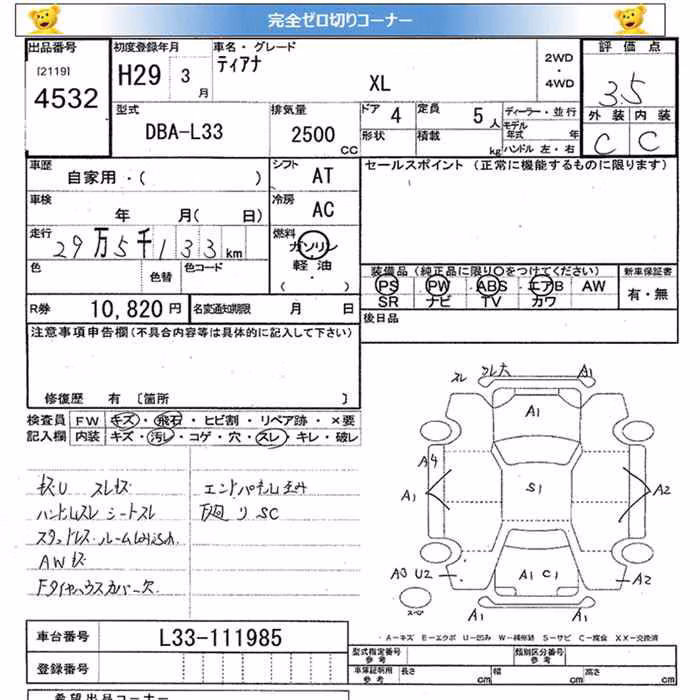 完全ゼロ切りコーナー
出品番号 初度登録年月 車名・グレード 2WD・4WD 評価点
[2119] 4532 H29 3月 ティアナ XL 3.5
型式 DBA-L33 排気量 2500cc ドア 4 定員 5人 ディーラー・並行 外装 内装
形状 積載 kg モデル年式 年 C C
ハンドル 左・右
車歴 自家用・( ) シフト AT セールスポイント (正常に機能するものに限ります)
車検 年 月( 日) 冷房 AC
走行 29万5千133km 燃料 ガソリン・軽油・( )
色 色替 色コード 装備品(純正品に限り○をつけてください) 新車保証書
PS PW ABS エアB AW 有・無
SR ナビ TV カワ
R券 10,820円 名変通知期限 月 日 後日品
注意事項申告欄(不具合内容等は具体的に記入して下さい)
修復歴 有 〔箇所 〕
検査員 FW キズ・飛石・ヒビ割・リペア跡・×要
記入欄 内装 キズ・汚レ・コゲ・穴・スレ・キレ・破レ
スレ スレ大 A1
A1
A4
A1 S1 A2
A3 U2 A1 C1 A2
スペア A1 A1
ハンドルスレ シートスレ
AWキズ
下廻りSC
・A－キズ E－エクボ U－凹み W－補修跡 S－サビ C－腐食 XX－交換済
車台番号 L33-111985
型式指定番号 参考 類別区分番号 参考
登録番号 車体証明用 参考 長さ cm 幅 cm 高さ cm
希望出品コーナー